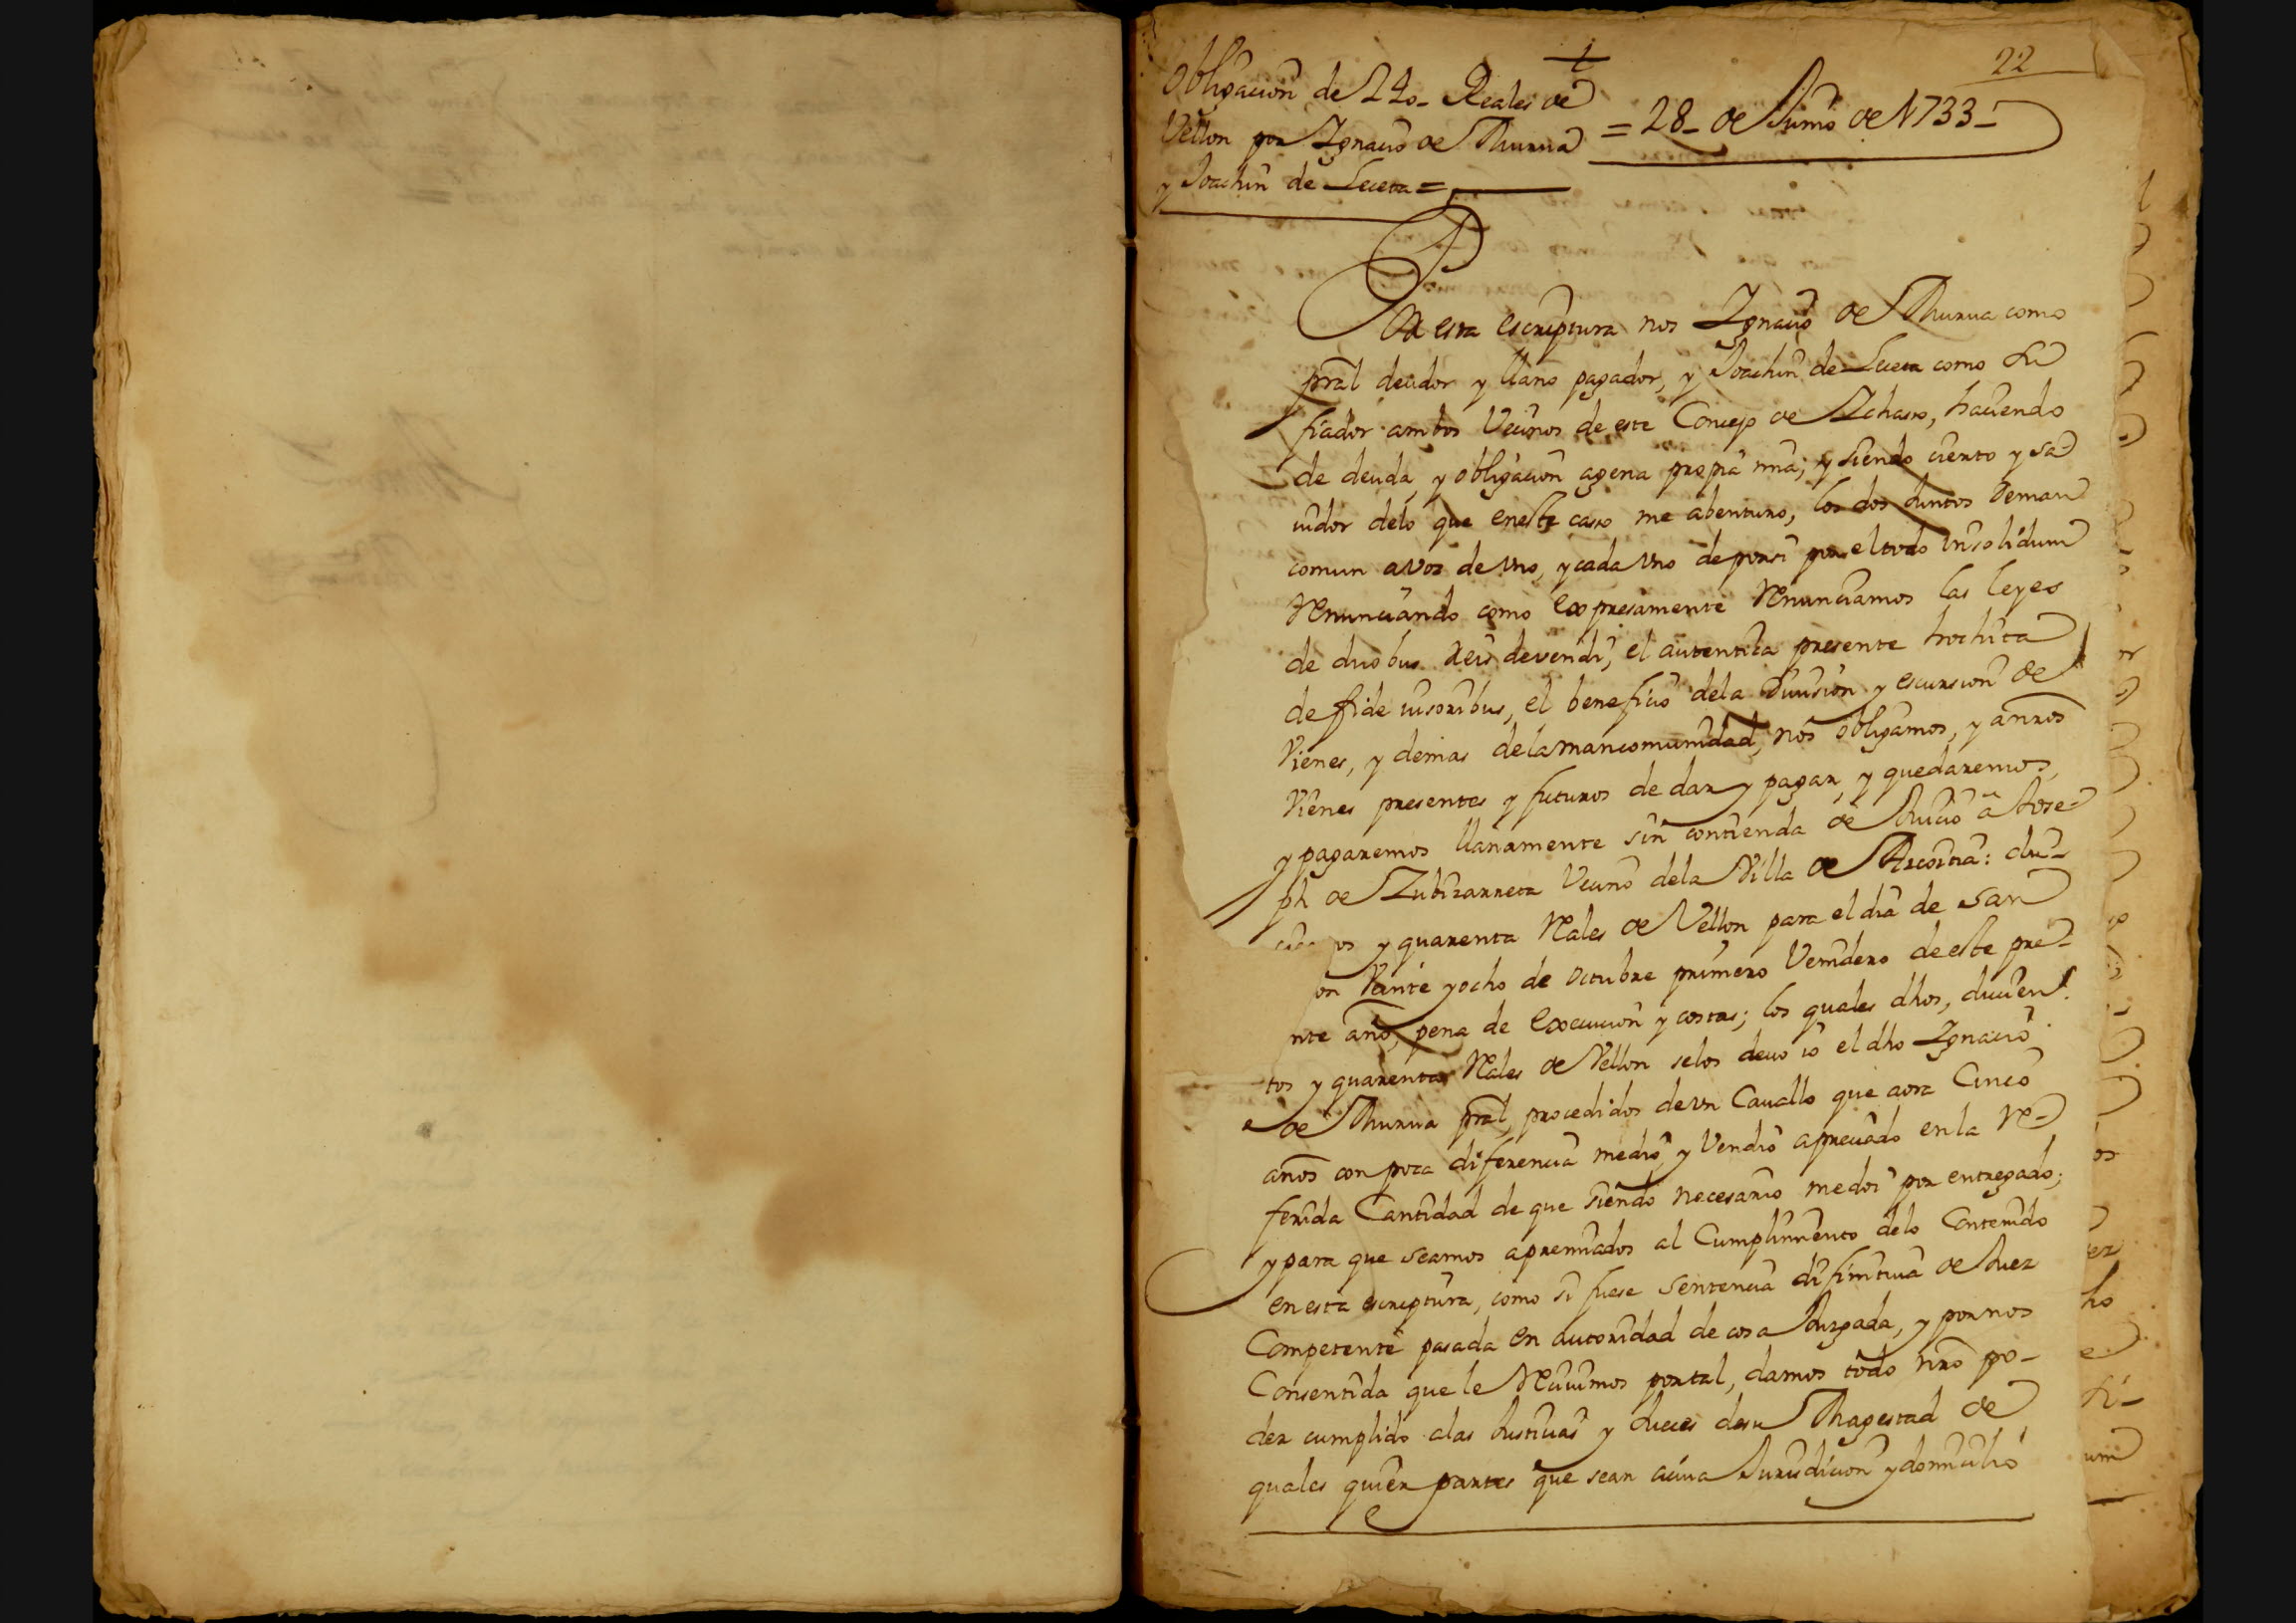 22
Obligacion de 240_ Reales de
Vellon por Ygnacio de Murua
y Joachin de Leceta =
= 28_ de Junio de 1733_
Por esta escriptura nos Ygnacio de Murua como
pral deudor y llano pagador, y Joachin de Leceta como su
fiador ambos Vecinos de este Concejo de Ychaso, haciendo
de deuda y obligacion agena propia mia; y siendo cierto y sa
vidor delo que eneste caso me abenturo, los dos Juntos deman
comun avoz de vno, y cada vno deporsi por eltodo insolidum
Renunciando como Expresamente Renunciamos las leyes
de duobus Reis devendi, el autentica presente hochita
de fide iusoribus, el beneficio dela Division y escursion de
Vienes, y demas delamancomunidad, nos obligamos, y anros
Vienes presentes y futuros de dar y pagar, y quedaremos,
y pagaremos llanamente sin contienda de Juicio â Jose
ph de Zubizarreta Vecino dela Villa de Azcoitia: du_
y quarenta Rales de Vellon para el dia de san
on Veinte yocho de octubre primero Venidero deeste pre_
nte año, pena de Execucion y costas; los quales dhos, ducien
tos y quarenta Rales de Vellon selos devo io el dho Ygnacio
de Murua pral, procedidos devn Cauallo que aora Cinco
años con poca diferencia medio, y Vendio apreciado enla Re_
ferida Cantidad de que siendo necesario medoi por entregado;
y para que seamos apremiados al Cumplimiento delo Contenido
enesta escriptura, como si fuese sentencia difinitiua de Juez
Competente pasada en autoridad de cosa Juzgada, y pornos
Consentida que le Reciuimos portal, damos todo nro po_
der cumplido alas Justicias y Jueces desu Magestad de
quales quier partes que sean acuia Jurisdicion ydomicilio